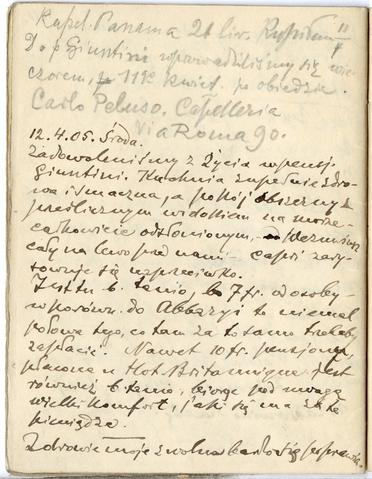 Kapel. Panama 26 lir.
Do p. Giuntini wprowadziliśmy się wie-
czorem, 11go kwiet. po obiedzie.
Carlo Peluso. Capelleria
Via Roma 90.
12.4.05. Środa.
Zadowoleniśmy z życia w pensj.
Giuntini. Kuchnia zupełnie zdro-
wa i smaczna, a pokój obszerny z
prześlicznym widokiem na morze
całkowicie odsłonionym,
cały na lewo przed nami – Capri zary-
sowuje się naprzeciwko.
Jest tu b. tanio, 7 fr. od osoby –
w porówn. do Abbazyi to niemal
połowa tego, co tam za to samo trzeba by
zapłacić. Nawet 10 fr. pensjonu,
płacone w Hot. Britannique jest
również b. tanio, biorąc pod uwagę
wielki komfort, jaki się ma za te
pieniądze.
Zdrowie moje zwolna bardzo się poprawia.